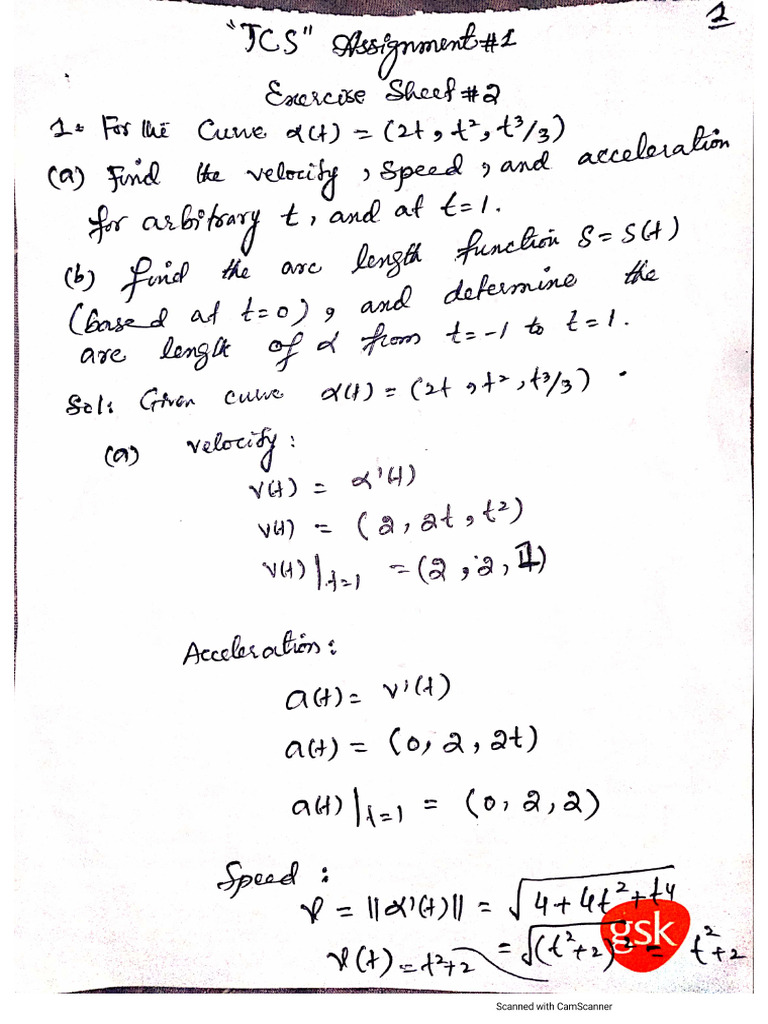 1
"TCS" Assignment #1
Exercise Sheet #2
1. For the Curve α(t) = (2t, t², t³/3)
(a) Find the velocity, Speed, and acceleration
for arbitrary t, and at t=1.
(b) find the arc length function S = S(t)
(based at t=0), and determine the
arc length of α from t=-1 to t=1.
Sol: Given curve α(t) = (2t, t², t³/3).
(a) velocity:
v(t) = α'(t)
v(t) = (2, 2t, t²)
v(t)|t=1 = (2, 2, 1)
Acceleration:
a(t) = v'(t)
a(t) = (0, 2, 2t)
a(t)|t=1 = (0, 2, 2)
Speed:
v = ||α'(t)|| = √4+4t²+t4
v(t) = t²+2 = √(t²+2)² = t²+2
gsk
Scanned with CamScanner